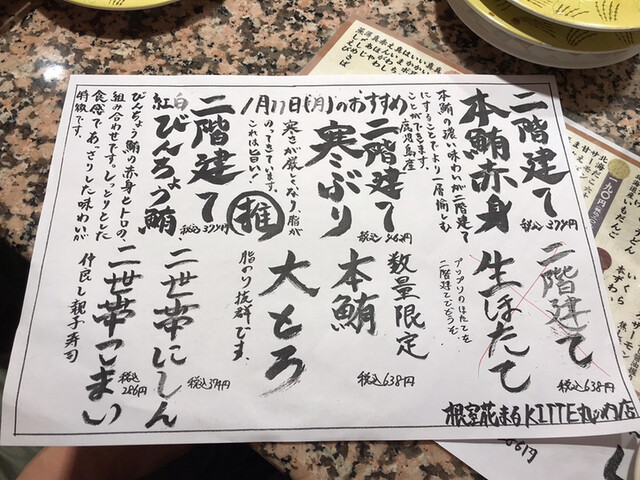 1月11日(月)のおすすめ
二階建て
本鮪赤身
税込374円
本鮪の濃い味わいが二階建て
にすることでより一層愉しむ
ことができます。
鹿児島産
二階建て
寒ぶり
税込462円
寒さが厳しくなり、脂が
のってきています。
これは旨い!
推
二階建て
紅白びんちょう鮪
税込374円
びんちょう鮪の赤身とトロの、
組み合わせです。しっとりとした
食感で、あっさりした味わいが
特徴です。
二階建て
生ほたて
税込638円
プリプリのほたてを
二階建てでどうぞ
数量限定
本鮪
大とろ
税込638円
脂のり抜群です。
二世帯にしん
税込374円
二世帯こまい
税込286円
仲良し親子寿司
根室花まるKITTE丸の内店